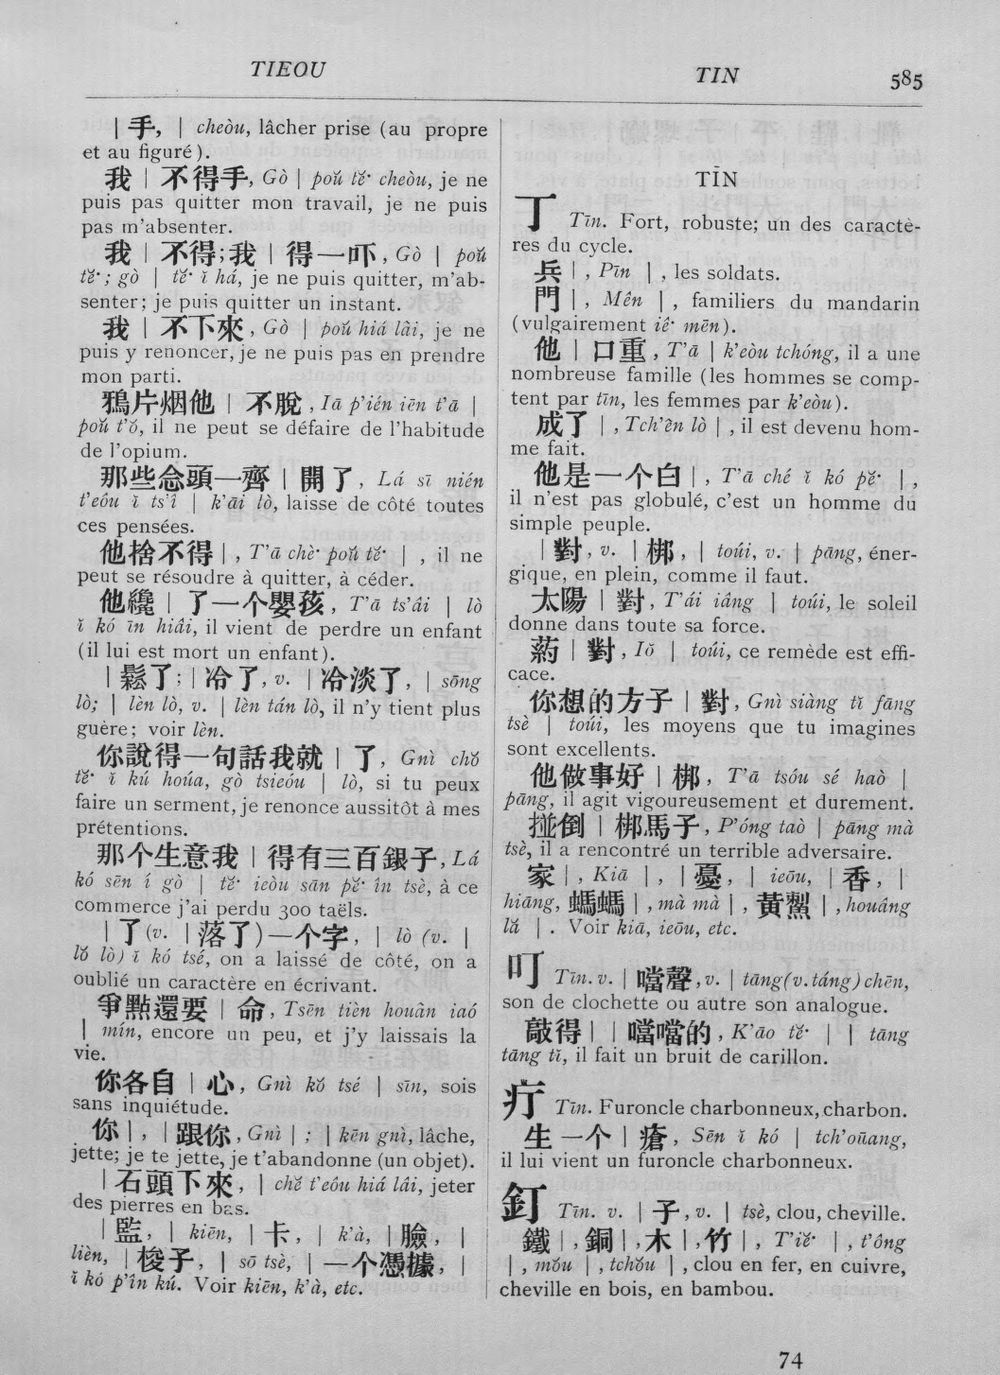 TIEOU
TIN
585
| 手, | cheòu, lâcher prise (au propre
et au figuré).
我 | 不得手, Gò | poŭ tĕ· cheòu, je ne
puis pas quitter mon travail, je ne puis
pas m'absenter.
我 | 不得;我 | 得一吓, Gò | poŭ
tĕ·; gò | tĕ· ĭ há, je ne puis quitter, m'ab-
senter; je puis quitter un instant.
我 | 不下來, Gò | poŭ hiá lâi, je ne
puis y renoncer, je ne puis pas en prendre
mon parti.
鴉片烟他 | 不脫, Iā p'ién iēn t'ā |
poŭ t'ŏ, il ne peut se défaire de l'habitude
de l'opium.
那些念頭一齊 | 開了, Lá sī nién
t'eôu ĭ ts'î | k'āi lò, laisse de côté toutes
ces pensées.
他捨不得 | , T'ā chè· poŭ tĕ· | , il ne
peut se résoudre à quitter, à céder.
他纔 | 了一个嬰孩, T'ā ts'âi | lò
ĭ kó īn hiâi, il vient de perdre un enfant
(il lui est mort un enfant).
| 鬆了; | 冷了, v. | 冷淡了, | sōng
lò; | lèn lò, v. | lèn tán lò, il n'y tient plus
guère; voir lèn.
你說得一句話我就 | 了, Gnì chŏ
tĕ· ĭ kú hoúa, gò tsieóu | lò, si tu peux
faire un serment, je renonce aussitôt à mes
prétentions.
那个生意我 | 得有三百銀子, Lá
kó sēn í gò | tĕ· ieòu sān pĕ· în tsè, à ce
commerce j'ai perdu 300 taëls.
| 了(v. | 落了)一个字, | lò (v. |
lŏ lò) ĭ kó tsé, on a laissé de côté, on a
oublié un caractère en écrivant.
爭點還要 | 命, Tsēn tièn houân iaó
| mín, encore un peu, et j'y laissais la
vie.
你各自 | 心, Gnì kŏ tsé | sīn, sois
sans inquiétude.
你 | , | 跟你, Gnì | ; | kēn gnì, lâche,
jette; je te jette, je t'abandonne (un objet).
| 石頭下來, | chĕ t'eôu hiá lâi, jeter
des pierres en bas.
| 監, | kiēn, | 卡, | k'à, | 臉, |
lièn, | 梭子, | sō tsè, | 一个憑據, |
ĭ kó p'în kú. Voir kiēn, k'à, etc.
TĪN
丁 Tīn. Fort, robuste; un des caractè-
res du cycle.
兵 | , Pīn | , les soldats.
門 | , Mên | , familiers du mandarin
(vulgairement iê· mēn).
他 | 口重, T'ā | k'eòu tchóng, il a une
nombreuse famille (les hommes se comp-
tent par tīn, les femmes par k'eòu).
成了 | , Tch'ên lò | , il est devenu hom-
me fait.
他是一个白 | , T'ā ché ĭ kó pĕ· | ,
il n'est pas globulé, c'est un homme du
simple peuple.
| 對, v. | 梆, | toúi, v. | pāng, éner-
gique, en plein, comme il faut.
太陽 | 對, T'ái iâng | toúi, le soleil
donne dans toute sa force.
葯 | 對, Iŏ | toúi, ce remède est effi-
cace.
你想的方子 | 對, Gnì siàng tĭ fāng
tsè | toúi, les moyens que tu imagines
sont excellents.
他做事好 | 梆, T'ā tsóu sé haò |
pāng, il agit vigoureusement et durement.
掽倒 | 梆馬子, P'óng taò | pāng mà
tsè, il a rencontré un terrible adversaire.
家 | , Kiā | , | 憂, | ieōu, | 香, |
hiāng, 螞螞 | , mà mà | , 黃 | , houâng
lă | . Voir kiā, ieōu, etc.
叮 Tīn. v. | 噹聲, v. | tāng (v. táng) chēn,
son de clochette ou autre son analogue.
敲得 | | 噹噹的, K'āo tĕ· | | tāng
tāng tĭ, il fait un bruit de carillon.
疔 Tīn. Furoncle charbonneux, charbon.
生一个 | 瘡, Sēn ĭ kó | tch'oūang,
il lui vient un furoncle charbonneux.
釘 Tīn. v. | 子, v. | tsè, clou, cheville.
鐵 | , 銅 | , 木 | , 竹 | , T'iĕ· | , t'ông
| , mŏu | , tchŏu | , clou en fer, en cuivre,
cheville en bois, en bambou.
74